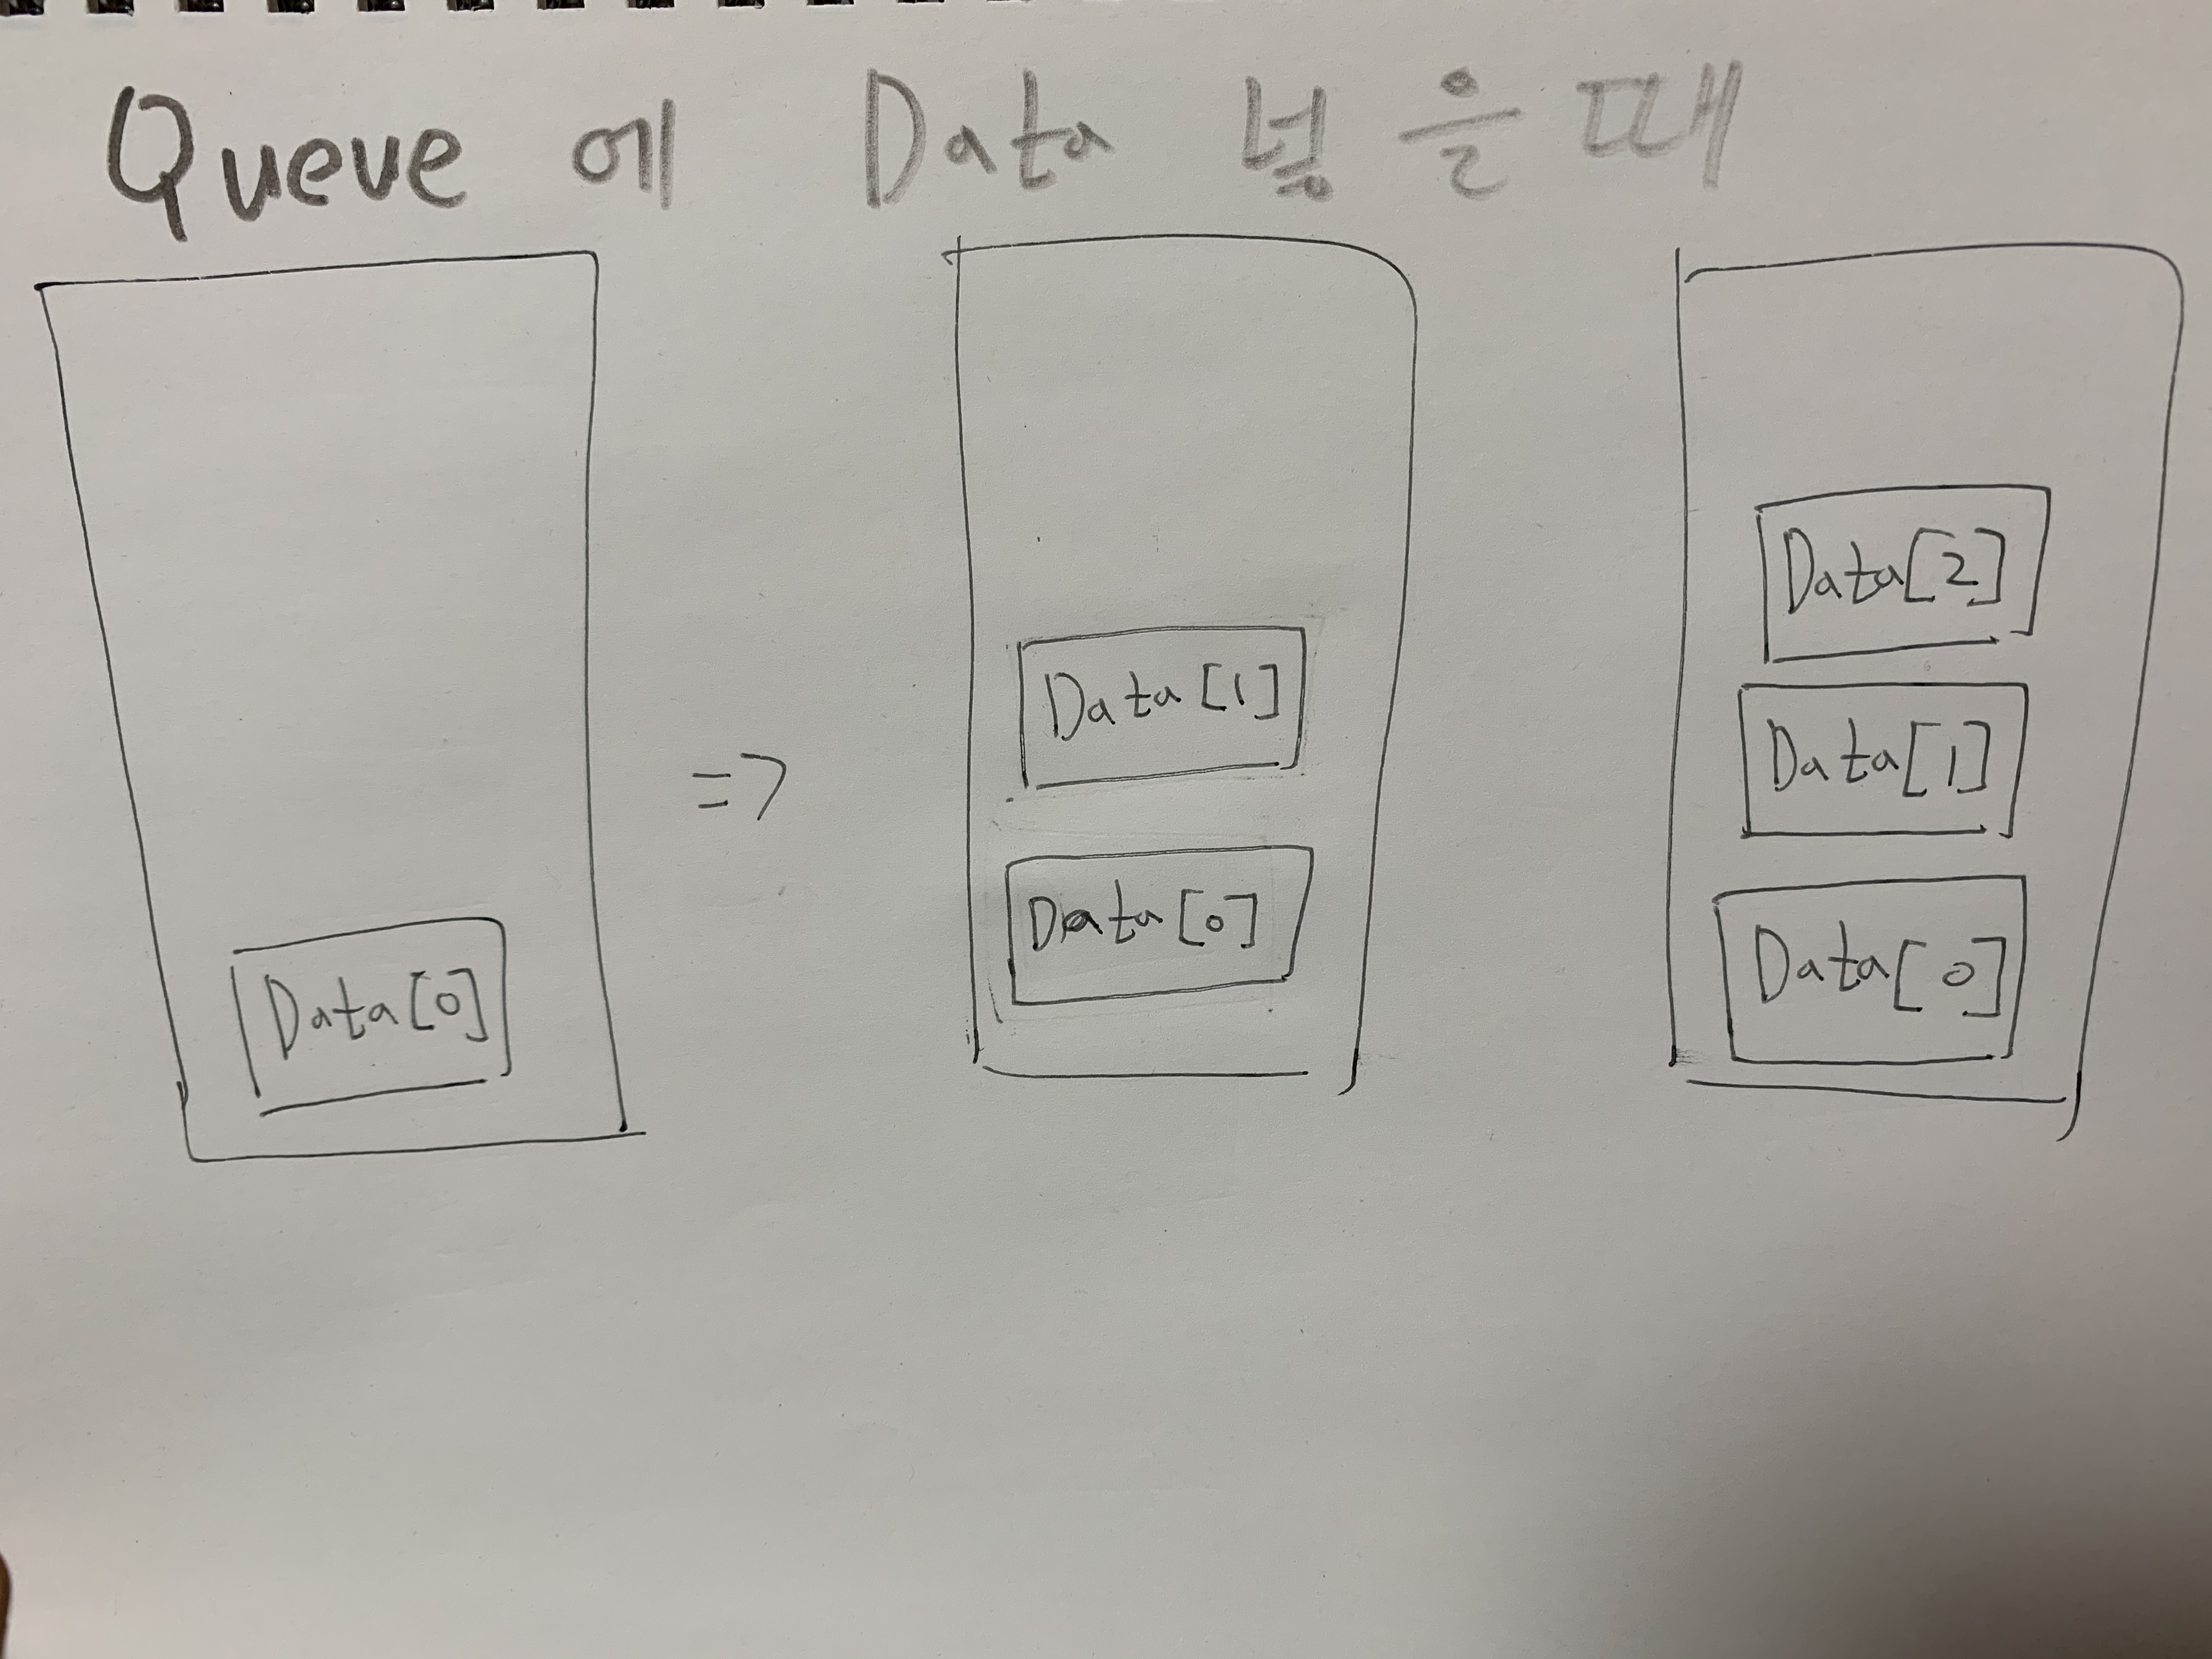 Queue에 Data 넣을때
Data[0]
=>
Data[1]
Data[0]
Data[2]
Data[1]
Data[0]